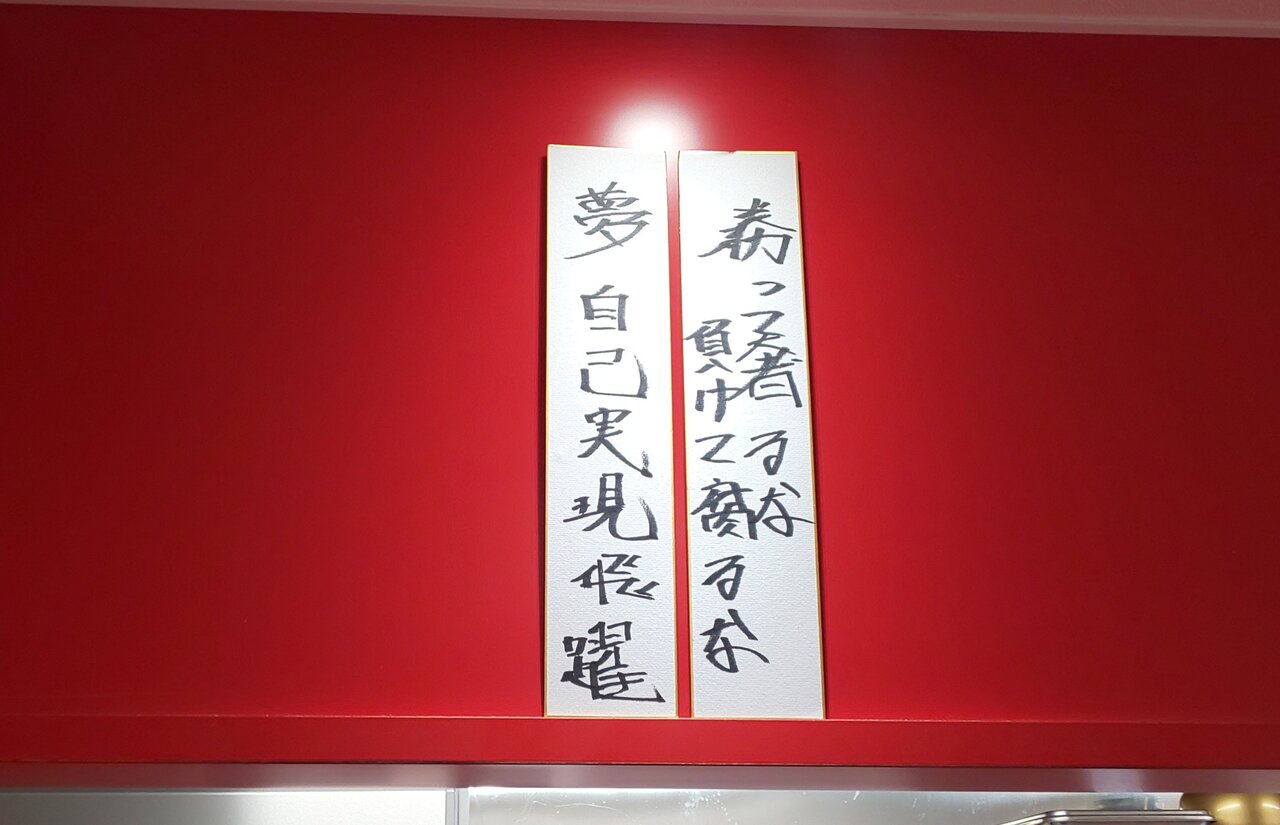 勝って奢るな
負けて腐るな
夢 自己実現飛躍